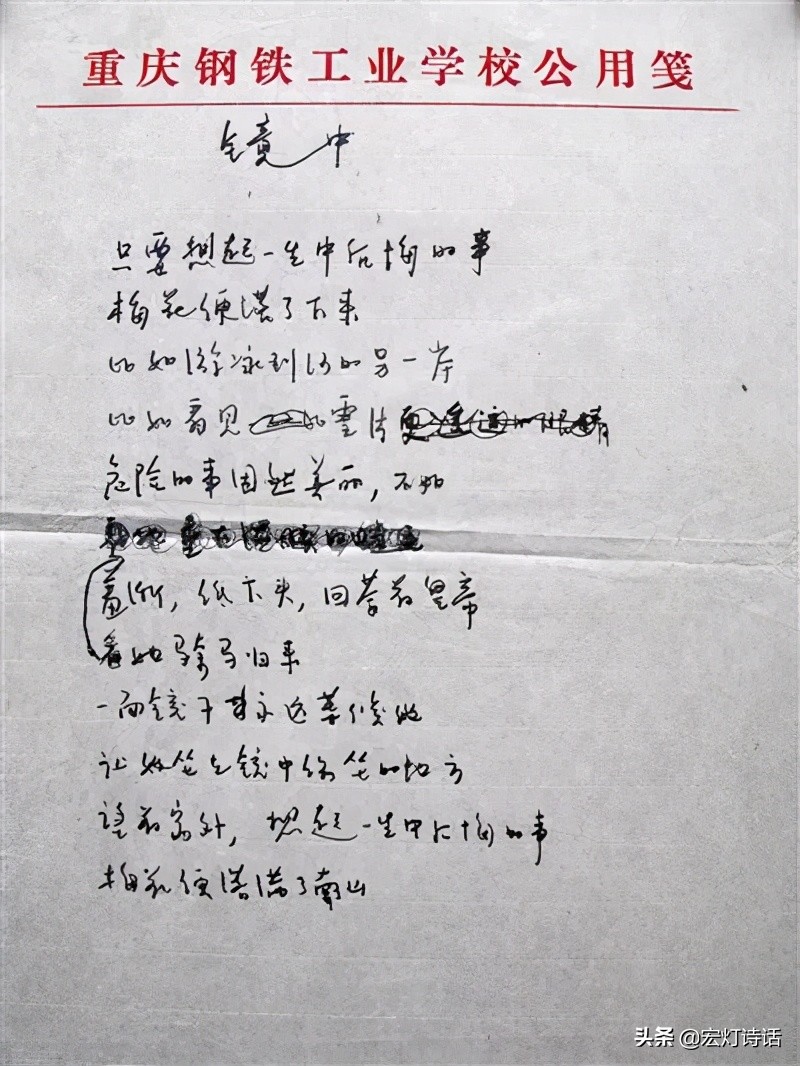 重庆钢铁工业学校公用笺
镜中
只要想起一生中后悔的事
梅花便落了下来
比如游泳到河的另一岸
比如看见
危险的事固然美丽，不如
羞惭，低下头，回答着皇帝
看她骑马归来
一面镜子永远等候她
让她坐在镜中你坐的地方
望着窗外，想起一生中后悔的事
梅花便落满了南山
头条 @宏灯诗话